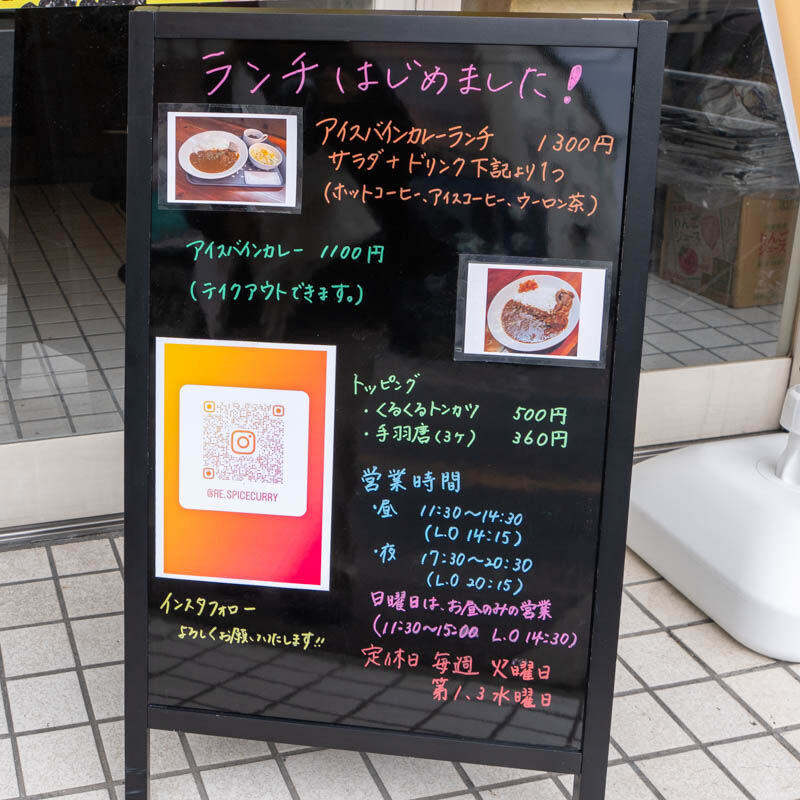 ランチはじめました!
アイスバインカレーランチ 1300円
サラダ+ドリンク下記より1つ
(ホットコーヒー、アイスコーヒー、ウーロン茶)
アイスバインカレー 1100円
(テイクアウトできます。)
トッピング
・くるくるトンカツ 500円
・手羽唐(3ケ) 360円
@RE.SPICECURRY
営業時間
・昼 11:30～14:30
(L.O 14:15)
・夜 17:30～20:30
(L.O 20:15)
インスタフォロー
よろしくお願いいたします!!
日曜日は、お昼のみの営業
(11:30～15:00 L.O 14:30)
定休日 毎週 火曜日
第1、3水曜日